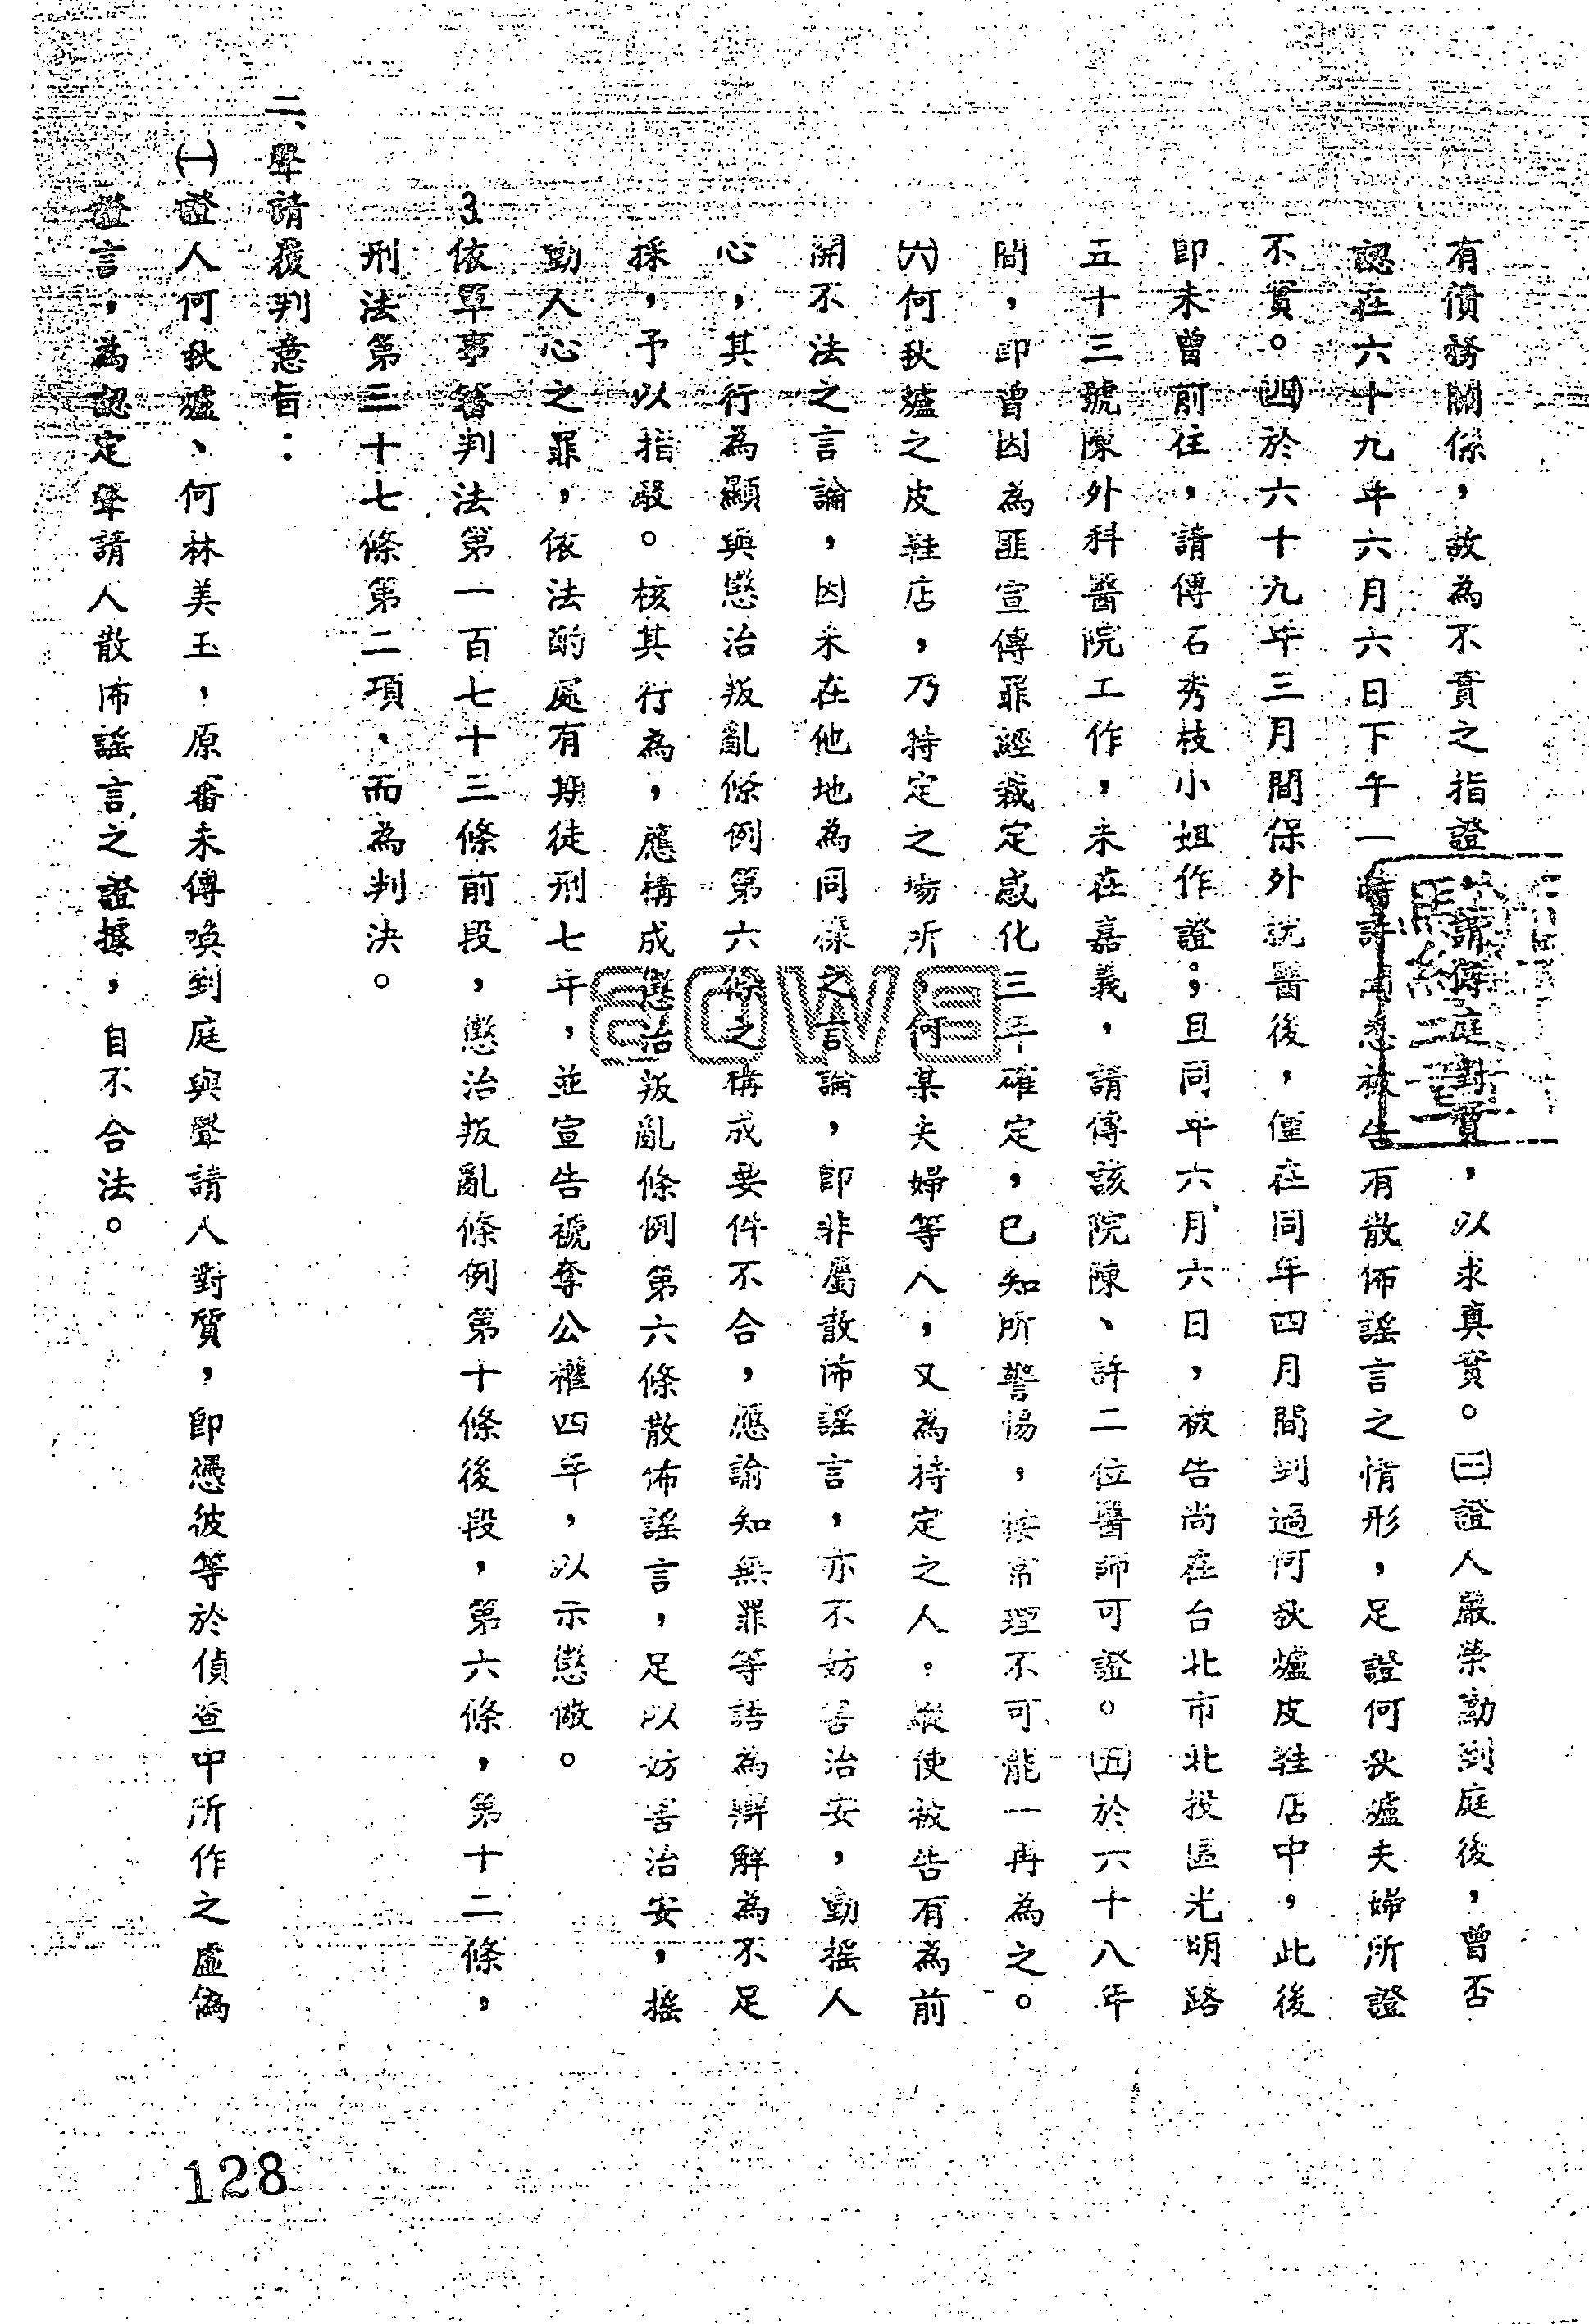 有債務關係，故為不實之指證，請傳庭對質，以求真實。㈢證人嚴榮勳到庭後，曾否
認在六十九年六月六日下午一時許聽悉被告有散佈謠言之情形，足證何秋爐夫婦所證
不實。㈣於六十九年三月間保外就醫後，僅在同年四月間到過何秋爐皮鞋店中，此後
即未曾前往，請傳石秀枝小姐作證；且同年六月六日，被告尚在台北市北投區光明路
五十三號陳外科醫院工作，未在嘉義，請傳該院陳、許二位醫師可證。㈤於六十八年
間，即曾因為匪宣傳罪經裁定感化三年確定，已知所警惕，按常理不可能一再為之。
㈥何秋爐之皮鞋店，乃特定之場所，何某夫婦等人，又為特定之人。縱使被告有為前
開不法之言論，因未在他地為同樣之言論，即非屬散佈謠言，亦不妨害治安，動搖人
心，其行為顯與懲治叛亂條例第六條之構成要件不合，應諭知無罪等語為辯解為不足
採，予以指駁。核其行為，應構成懲治叛亂條例第六條散佈謠言，足以妨害治安，搖
動人心之罪，依法酌處有期徒刑七年，並宣告褫奪公權四年，以示懲儆。
3.依軍事審判法第一百七十三條前段，懲治叛亂條例第十條後段，第六條，第十二條，
刑法第三十七條第二項、而為判決。
二、聲請覆判意旨：
㈠證人何秋爐、何林美玉，原審未傳喚到庭與聲請人對質，即憑彼等於偵查中所作之虛偽
證言，為認定聲請人散佈謠言之證據，自不合法。
128